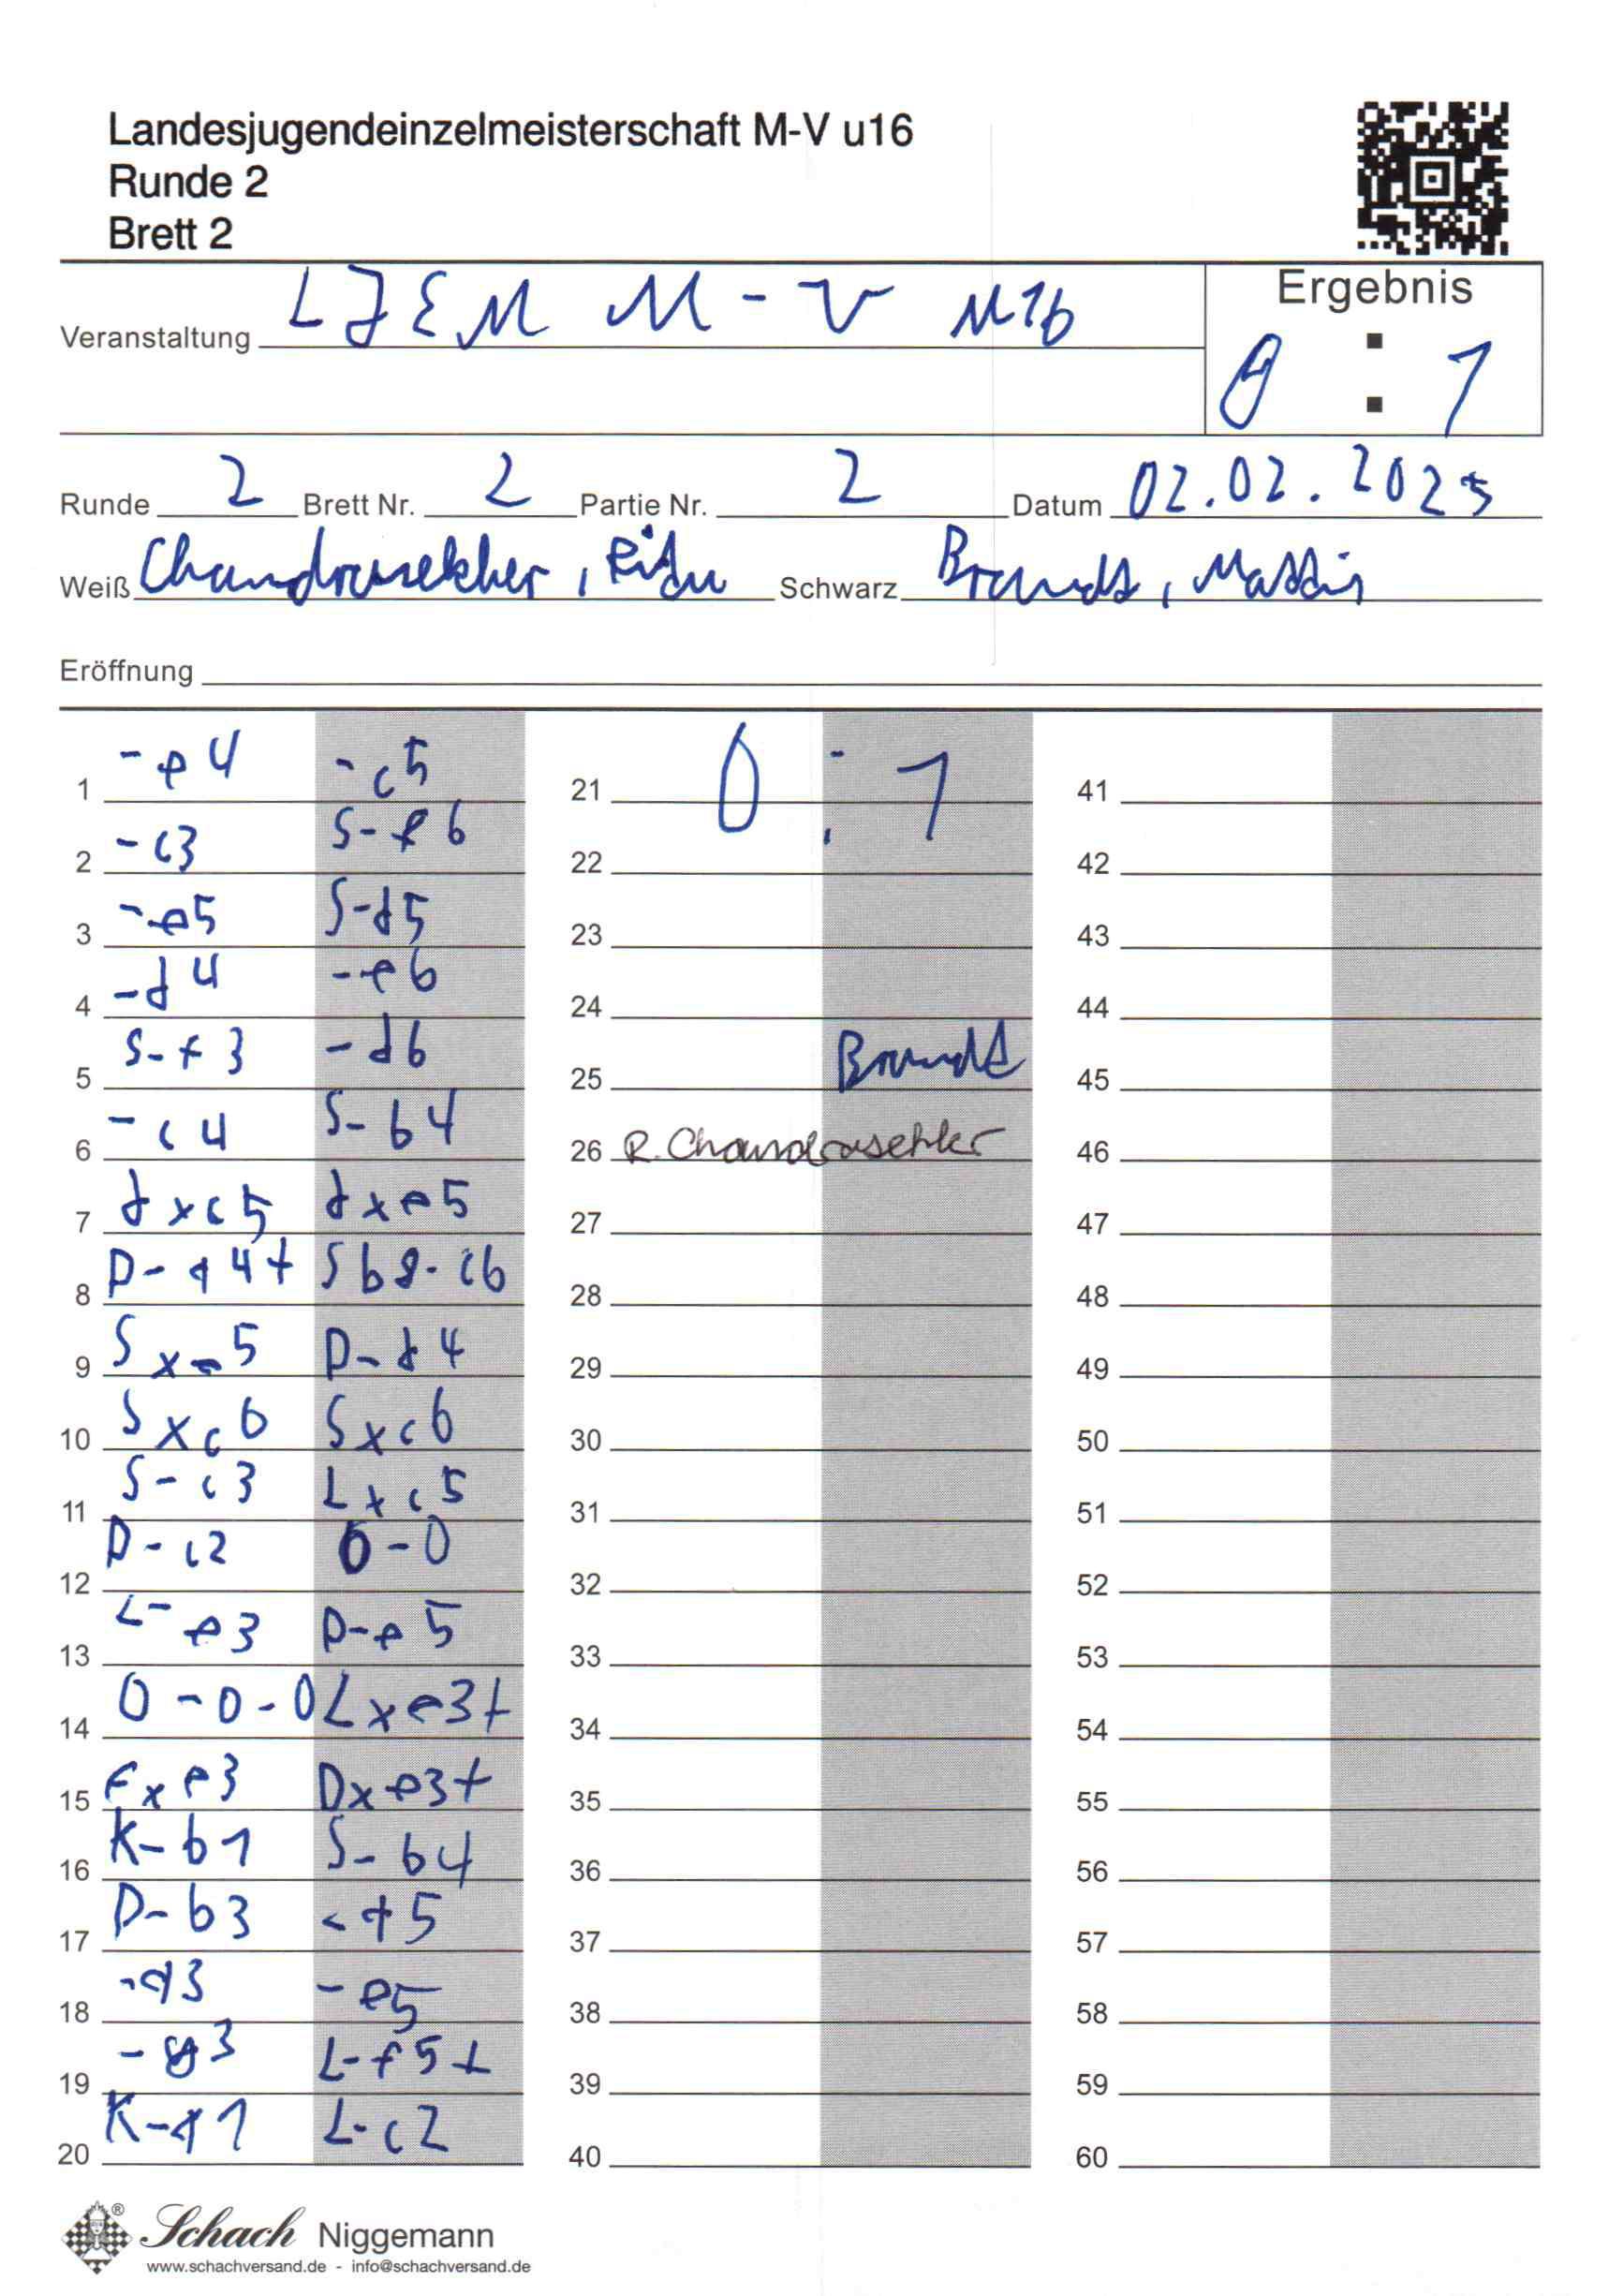 Landesjugendeinzelmeisterschaft M-V u16
Runde 2
Brett 2
Veranstaltung LJEM M-V U16
Ergebnis
0 : 1
Runde 2 Brett Nr. 2 Partie Nr. 2 Datum 02.02.2025
Weiß Chandrasekher, Ridu Schwarz Brandt, Mattis
Eröffnung
1 -e4 -c5
2 -c3 S-f6
3 -e5 S-d5
4 -d4 -e6
5 S-f3 -d6
6 -c4 S-b4
7 dxc5 dxe5
8 D-a4+ Sb8-c6
9 Sxe5 D-d4
10 Sxc6 Sxc6
11 S-c3 Lxc5
12 D-c2 0-0
13 L-e3 D-e5
14 0-0-0 Lxe3+
15 Fxe3 Dxe3+
16 K-b1 S-b4
17 D-b3 -f5
18 -a3 -e5
19 -g3 L-f5+
20 K-a1 L-c2
21 0 : 1
22
23
24
25 Brandt
26 R. Chandrasehker
27
28
29
30
31
32
33
34
35
36
37
38
39
40
41
42
43
44
45
46
47
48
49
50
51
52
53
54
55
56
57
58
59
60
® Schach Niggemann
www.schachversand.de - info@schachversand.de